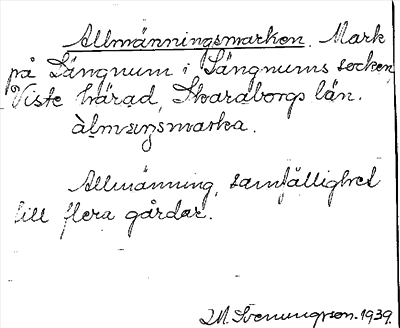 Allmänningsmarken. Mark
på Längnum i Längnums socken,
Viste härad, Skaraborgs län.
àlmæŋsmarka.
Allmänning, samfällighet
till flera gårdar.
M. Svenungson. 1939.